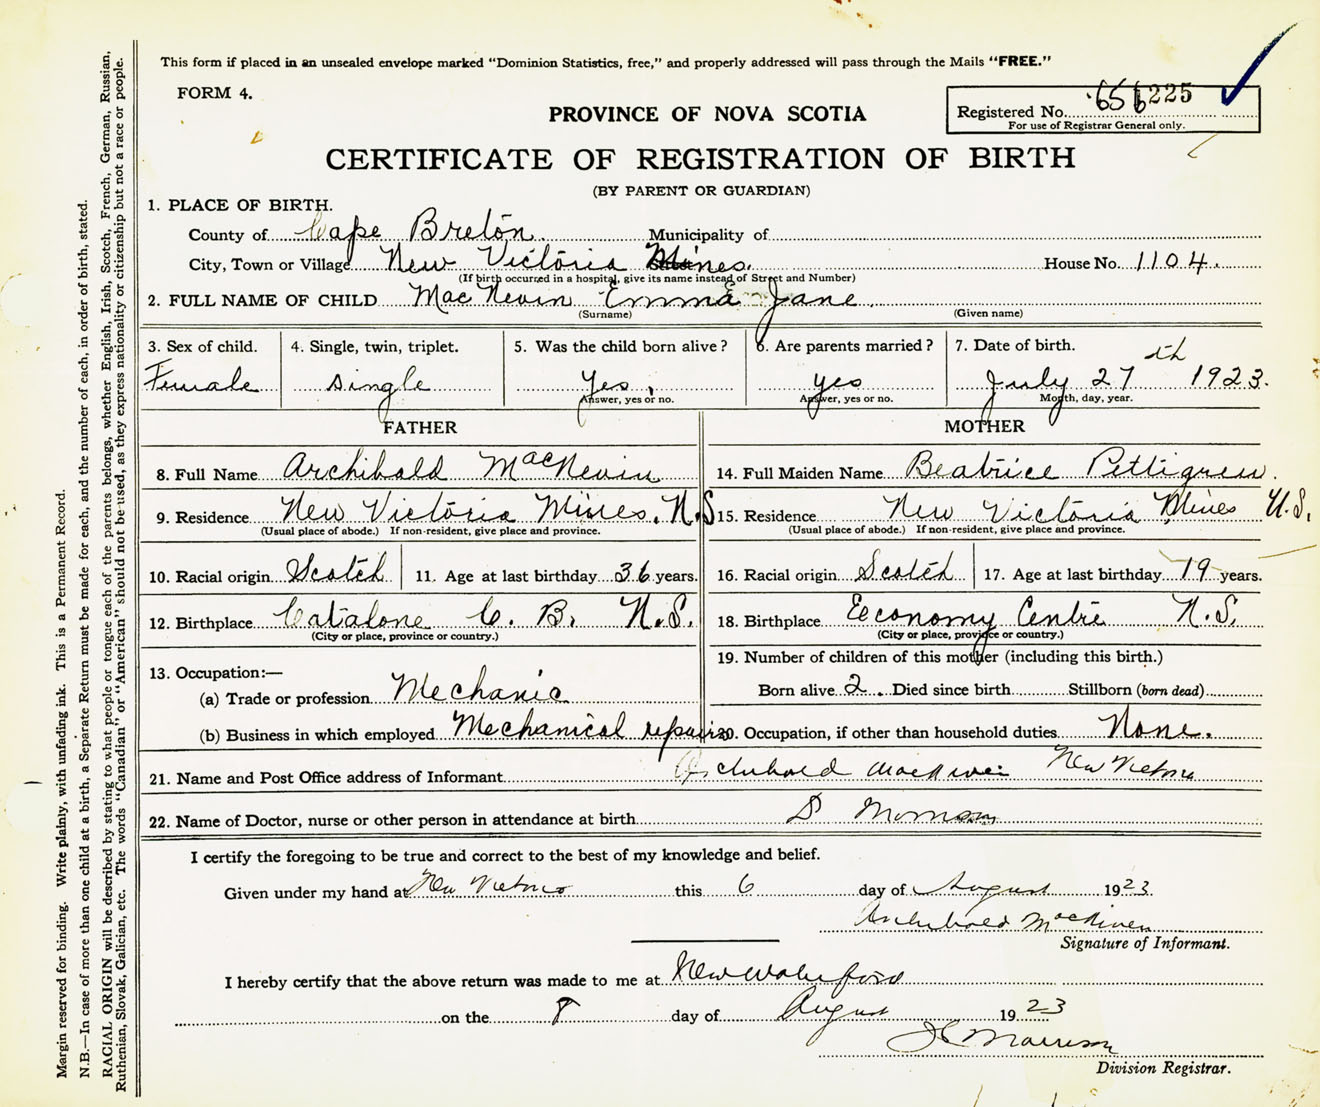 This form if placed in an unsealed envelope marked "Dominion Statistics, free," and properly addressed will pass through the Mails "FREE."
FORM 4.
PROVINCE OF NOVA SCOTIA
Registered No. 656225
For use of Registrar General only.
CERTIFICATE OF REGISTRATION OF BIRTH
(BY PARENT OR GUARDIAN)
1. PLACE OF BIRTH.
County of Cape Breton Municipality of
City, Town or Village New Victoria Mines. House No. 1104.
(If birth occurred in a hospital, give its name instead of Street and Number)
2. FULL NAME OF CHILD MacNevin Emma Jane
(Surname) (Given name)
3. Sex of child. 4. Single, twin, triplet. 5. Was the child born alive? 6. Are parents married? 7. Date of birth.
Female single Yes. yes July 27th 1923.
Answer, yes or no. Answer, yes or no. Month, day, year.
FATHER MOTHER
8. Full Name Archibald MacNevin 14. Full Maiden Name Beatrice Pettigrew.
9. Residence New Victoria Mines. N.S 15. Residence New Victoria Mines N.S.
(Usual place of abode.) If non-resident, give place and province. (Usual place of abode.) If non-resident, give place and province.
10. Racial origin Scotch 11. Age at last birthday 36 years. 16. Racial origin Scotch 17. Age at last birthday 19 years.
12. Birthplace Catalone C. B. N.S. 18. Birthplace Economy Centre N.S.
(City or place, province or country.) (City or place, province or country.)
13. Occupation:— 19. Number of children of this mother (including this birth.)
(a) Trade or profession Mechanic Born alive 2. Died since birth Stillborn (born dead)
(b) Business in which employed Mechanical repairs 20. Occupation, if other than household duties None.
21. Name and Post Office address of Informant Archibald MacNiven New Victoria
22. Name of Doctor, nurse or other person in attendance at birth D Morrison
I certify the foregoing to be true and correct to the best of my knowledge and belief.
Given under my hand at New Victoria this 6 day of August 1923.
Archibald MacNiven
Signature of Informant.
I hereby certify that the above return was made to me at New Waterford
on the 8 day of August 1923
Morrison
Division Registrar.
Margin reserved for binding. Write plainly, with unfading ink. This is a Permanent Record.
N.B.—In case of more than one child at a birth, a Separate Return must be made for each, and the number of each, in order of birth, stated.
RACIAL ORIGIN will be described by stating to what people or tongue each of the parents belongs, whether English, Irish, Scotch, French, German, Russian,
Ruthenian, Slovak, Galician, etc. The words "Canadian" or "American" should not be used, as they express nationality or citizenship but not a race or people.